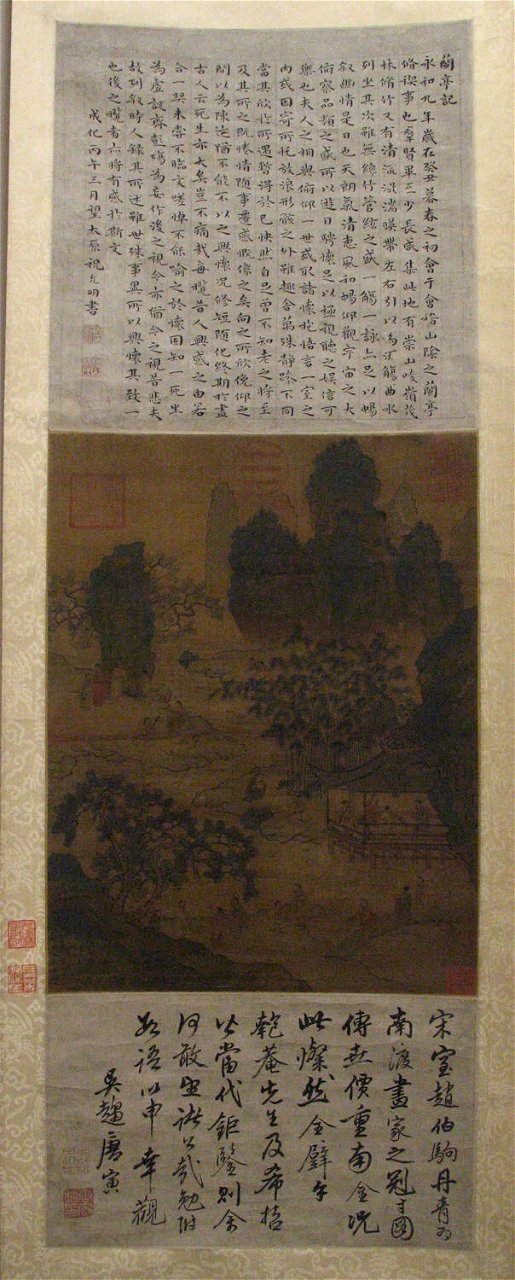 蘭亭記
永和九年歲在癸丑暮春之初會于會稽山陰之蘭亭
脩禊事也羣賢畢至少長咸集此地有崇山峻嶺茂
林脩竹又有清流激湍暎帶左右引以為流觴曲水
列坐其次雖無絲竹管絃之盛一觴一詠亦足以暢
敘幽情是日也天朗氣清惠風和暢仰觀宇宙之大
俯察品類之盛所以遊目騁懷足以極視聽之娛信可
樂也夫人之相與俯仰一世或取諸懷抱悟言一室之
內或因寄所托放浪形骸之外雖趣舍萬殊靜躁不同
當其欣於所遇暫得於己快然自足曾不知老之將至
及其所之既惓情隨事遷感慨係之矣向之所欣俛仰之
間以為陳迹猶不能不以之興懷況脩短隨化終期於盡
古人云死生亦大矣豈不痛哉每覽昔人興感之由若
合一契未嘗不臨文嗟悼不能喻之於懷固知一死生
為虛誕齊彭殤為妄作後之視今亦猶今之視昔悲夫
故列敘時人錄其所述雖世殊事異所以興懷其致一
也後之覽者亦將有感於斯文
成化丙午三月望太原祝允明書
宋室趙伯駒丹青為
南渡畫家之冠寸圖
傳世價重南金況
此燦然全璧乎
匏菴先生及希哲
以當代鉅鑒則余
何敢諸公哉勉附
數語以申幸觀
吳趨唐寅